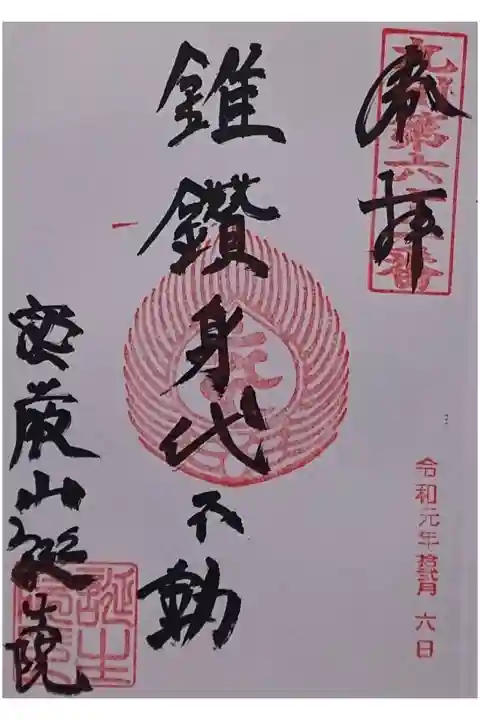 九州第六十二番
奉拝
錐鑽身代不動
密厳山誕生院
誕生
令和元年拾弐月 六日